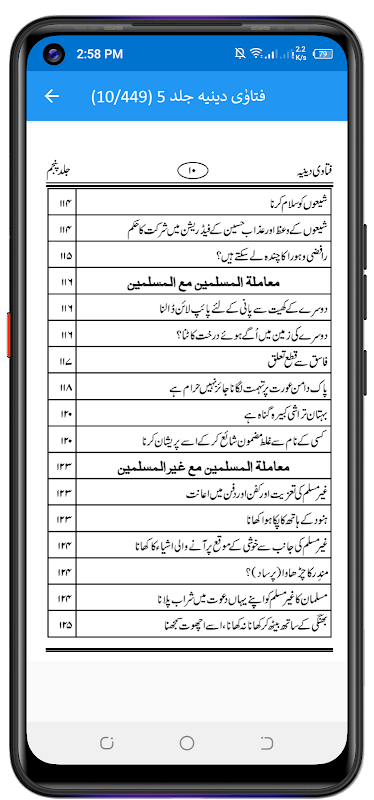 2:58 PM 2.2 K/s 79
فتاوٰی دینیه جلد 5 (10/449)
فتاوی دینیہ ۱۰ جلد پنجم
شیعوں کو سلام کرنا ۱۱۴
شیعوں کے وعظ اور عذاب حسین کے فیڈریشن میں شرکت کا حکم ۱۱۴
رافضی وہورا کا چندہ لے سکتے ہیں؟ ۱۱۵
معاملة المسلمين مع المسلمين ۱۱۶
دوسرے کے کھیت سے پانی کے لئے پائپ لائن ڈالنا ۱۱۶
دوسرے کی زمین میں اُگے ہوئے درخت کا ٹنا؟ ۱۱۶
فاسق سے قطع تعلق ۱۱۷
پاک دامن عورت پر تہمت لگانا جائز نہیں حرام ہے ۱۱۸
بہتان تراشی کبیرہ گناہ ہے ۱۲۰
کسی کے نام سے غلط مضمون شائع کر کے اسے پریشان کرنا ۱۲۰
معاملة المسلمين مع غير المسلمين ۱۲۳
غیر مسلم کی تعزیت اور کفن اور دفن میں اعانت ۱۲۳
ہنود کے ہاتھ کا پکا ہوا کھانا ۱۲۳
غیر مسلم کی جانب سے خوشی کے موقع پر آنے والی اشیاء کا کھانا ۱۲۴
مندر کا چڑھاوا (پرساد)؟ ۱۲۴
مسلمان کا غیر مسلم کو اپنے یہاں دعوت میں شراب پلانا ۱۲۴
بھنگی کے ساتھ بیٹھ کر کھانا نہ کھانا، اسے اچھوت سمجھنا ۱۲۵